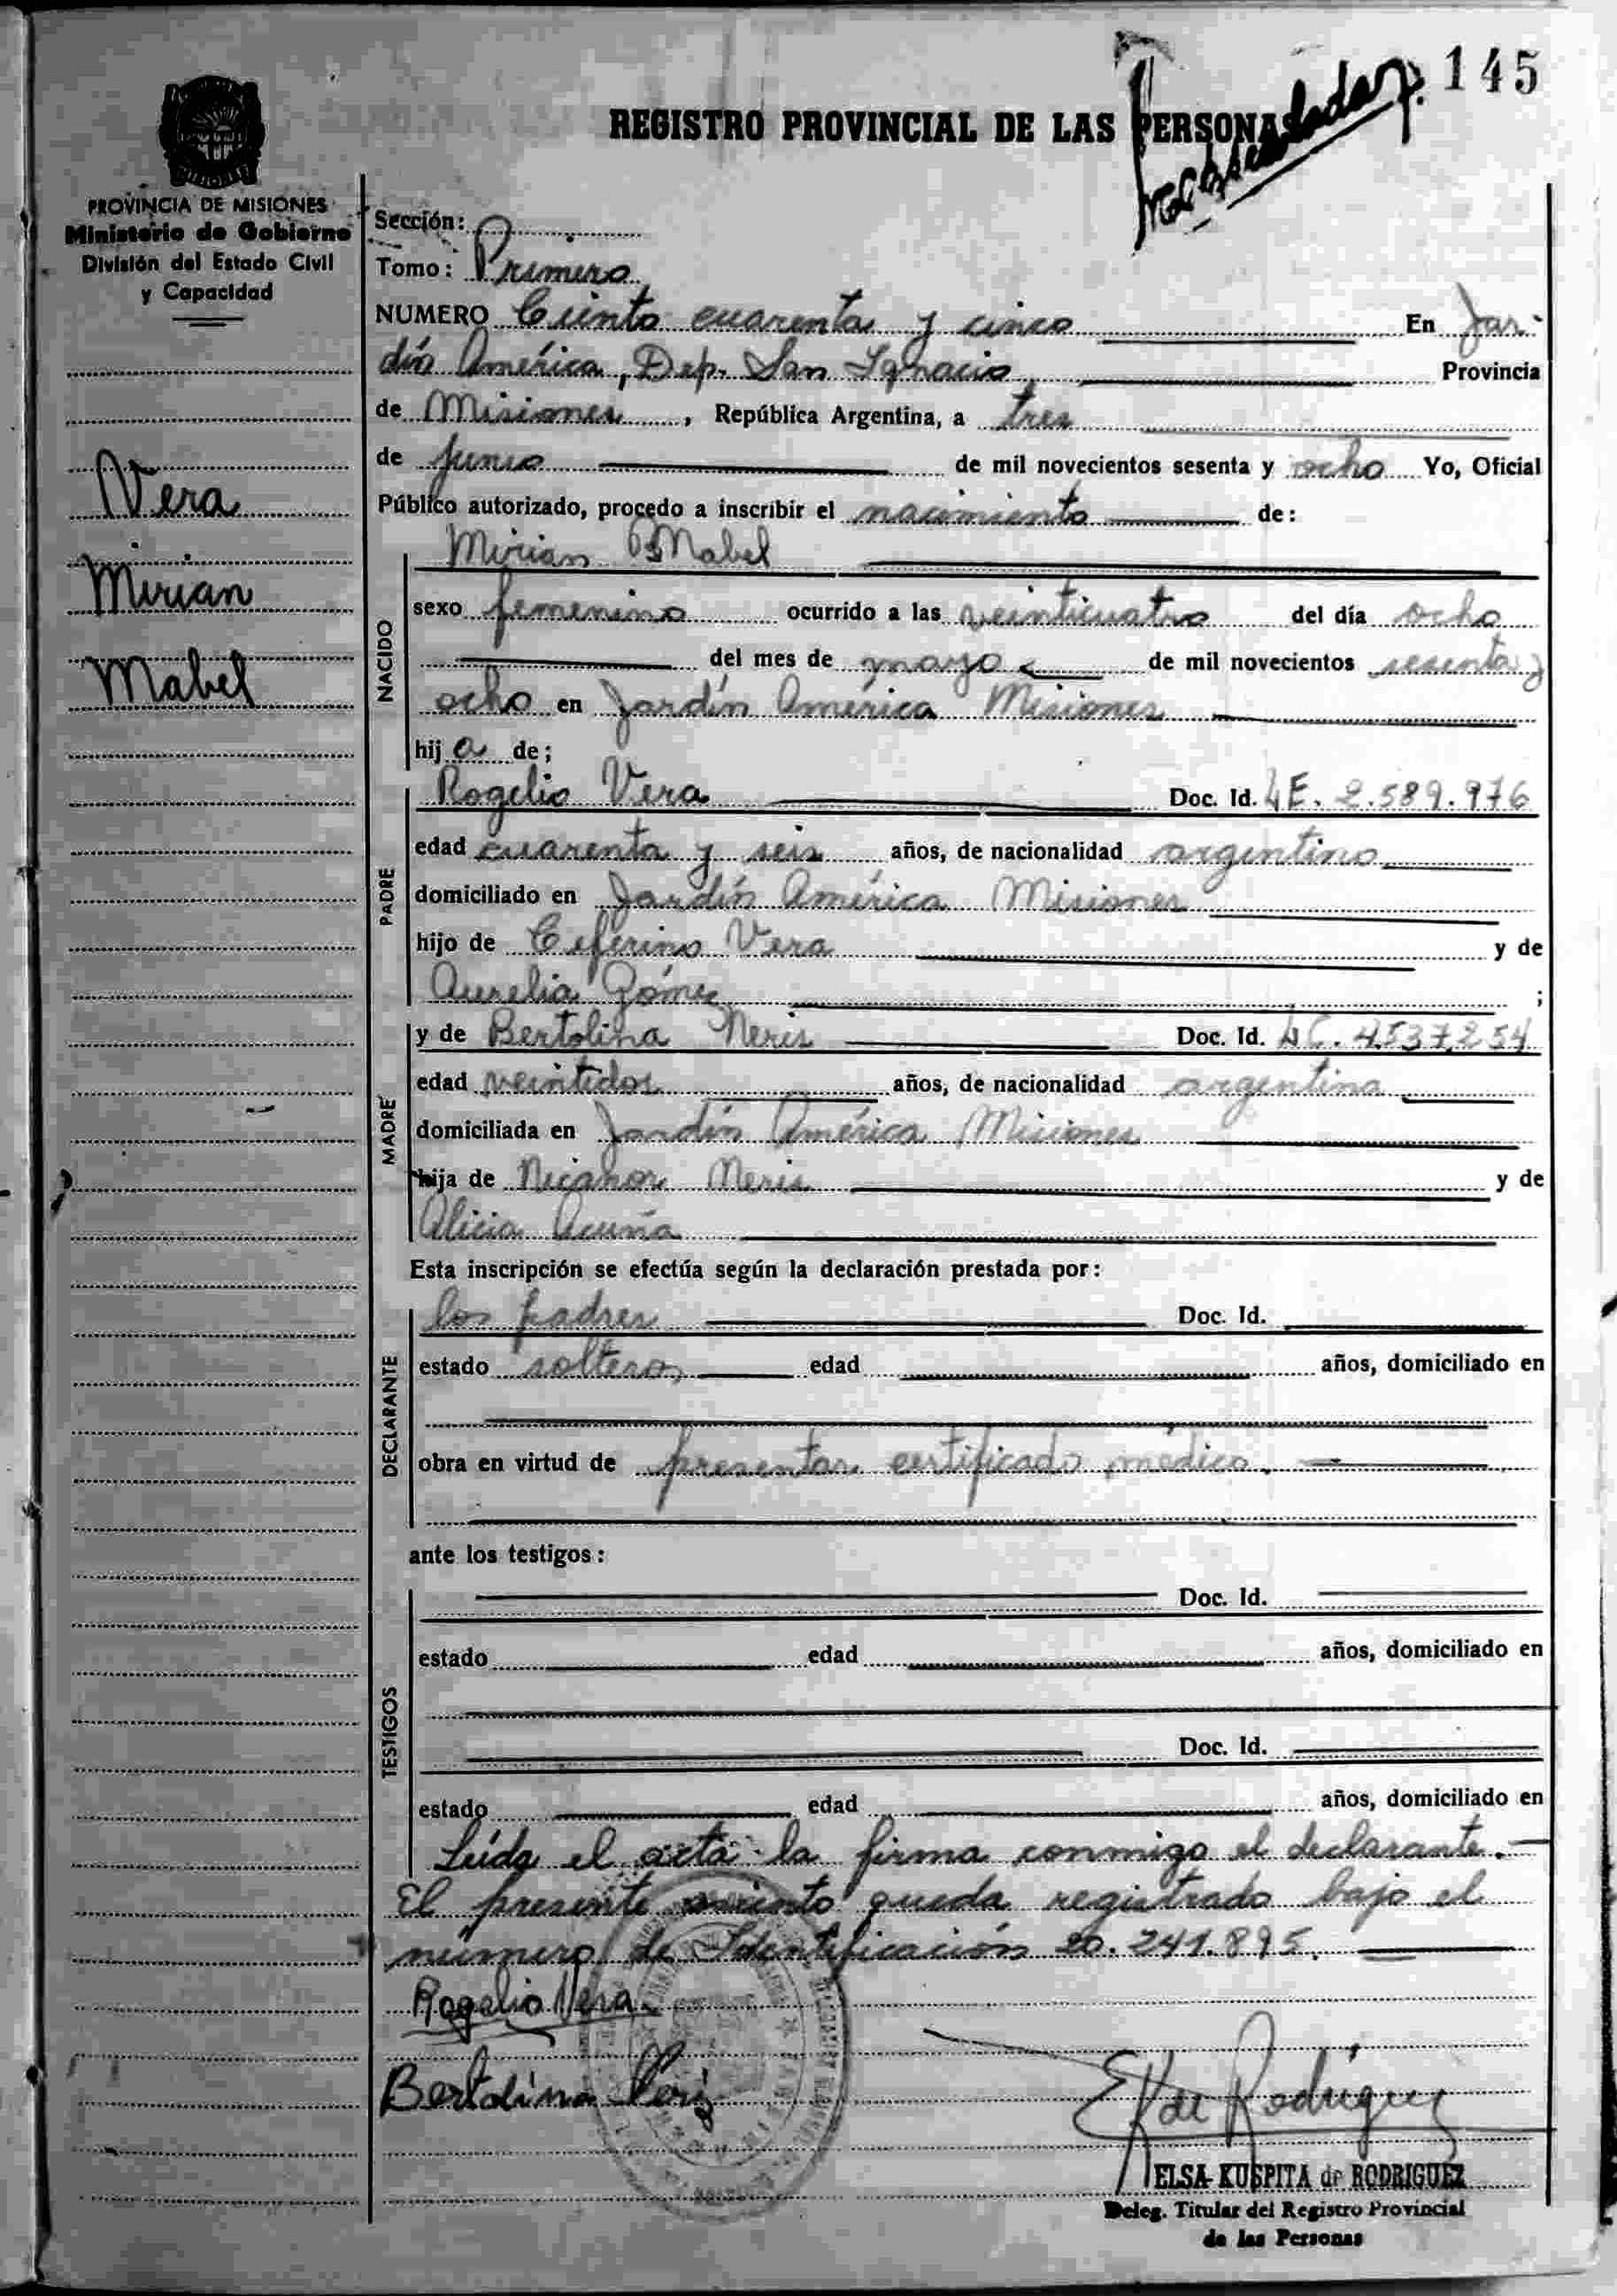 145
REGISTRO PROVINCIAL DE LAS PERSONAS
PROVINCIA DE MISIONES
Ministerio de Gobierno
División del Estado Civil
y Capacidad
Vera
Mirian
Mabel
Sección:
Tomo: Primero
NUMERO Ciento cuarenta y cinco En Jar-
dín América, Dep. San Ignacio, Provincia
de Misiones, República Argentina, a tres
de junio de mil novecientos sesenta y ocho Yo, Oficial
Público autorizado, procedo a inscribir el nacimiento de:
Mirian Mabel
NACIDO
sexo femenino ocurrido a las veinticuatro del día ocho
del mes de mayo de mil novecientos sesenta y
ocho en Jardín América Misiones
hij a de;
PADRE
Rogelio Vera Doc. Id. LE. 2.589.976
edad cuarenta y seis años, de nacionalidad argentino
domiciliado en Jardín América Misiones
hijo de Ceferino Vera y de
Aurelia Gómez ;
MADRE
y de Bertolina Neris Doc. Id. LC. 4.537.254
edad veintidos años, de nacionalidad argentina
domiciliada en Jardín América Misiones
hija de Nicanor Neris y de
Alicia Acuña
Esta inscripción se efectúa según la declaración prestada por:
DECLARANTE
los padres Doc. Id.
estado solteros edad años, domiciliado en
obra en virtud de presentar certificado médico.
ante los testigos:
TESTIGOS
Doc. Id.
estado edad años, domiciliado en
Doc. Id.
estado edad años, domiciliado en
Leída el acta la firma conmigo el declarante.
El presente asiento queda registrado bajo el
número de Identificación 20.241.895.
Rogelio Vera
Bertolina Neris
E K de Rodriguez
ELSA KUSPITA de RODRIGUEZ
Deleg. Titular del Registro Provincial
de las Personas